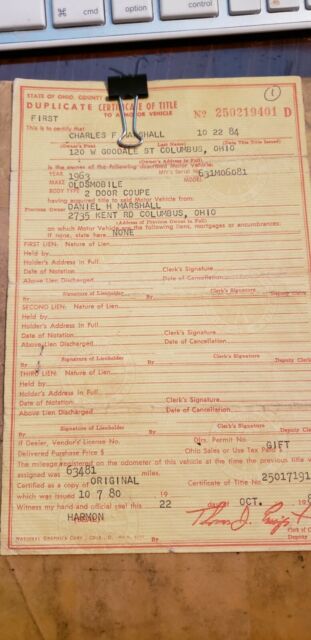 ⌘
cmd
alt
①
STATE OF OHIO, COUNTY
DUPLICATE CERTIFICATE OF TITLE
TO A MOTOR VEHICLE
No 250219401 D
FIRST
This is to certify that
CHARLES F MARSHALL 10 22 84
(Owner's First) (Last Name) (Date This Title Issued)
120 W GOODALE ST COLUMBUS, OHIO
(Owner's Address in Full)
is the owner of the following described Motor Vehicle:
YEAR 1963 MFr's Serial No 631M06081
MAKE OLDSMOBILE MODEL
BODY TYPE 2 DOOR COUPE
having acquired title to said Motor Vehicle from:
Previous Owner DANIEL H MARSHALL
2735 KENT RD COLUMBUS, OHIO
(Address of Previous Owner in Full)
on which Motor Vehicle are the following liens, mortgages or encumbrances:
If none, state here NONE
FIRST LIEN: Nature of Lien
Held by
Holder's Address in Full
Date of Notation Clerk's Signature
Above Lien Discharged Date of Cancellation
Signature of Lienholder Clerk's Signature Deputy Clerk
By By
SECOND LIEN: Nature of Lien
Held by
Holder's Address in Full
Date of Notation Clerk's Signature
Above Lien Discharged Date of Cancellation
Signature of Lienholder Clerk's Signature Deputy Cler
By By
THIRD LIEN: Nature of Lien
Held by
Holder's Address in Full
Date of Notation Clerk's Signature
Above Lien Discharged Date of Cancellation
Signature of Lienholder Clerk's Signature Deputy Cl
By By
If Dealer, Vendor's License No. Dlrs. Permit No.
Delivered Purchase Price $ Ohio Sales or Use Tax Paid $ GIFT
The mileage registered on the odometer of this vehicle at the time the previous title w
assigned was 63481 miles.
Certified as a copy of ORIGINAL Certificate of Title No. 25017191
which was issued 10 7 80 19
Witness my hand and official seal this 22 day OCT.
HARMON
(SEAL)
By